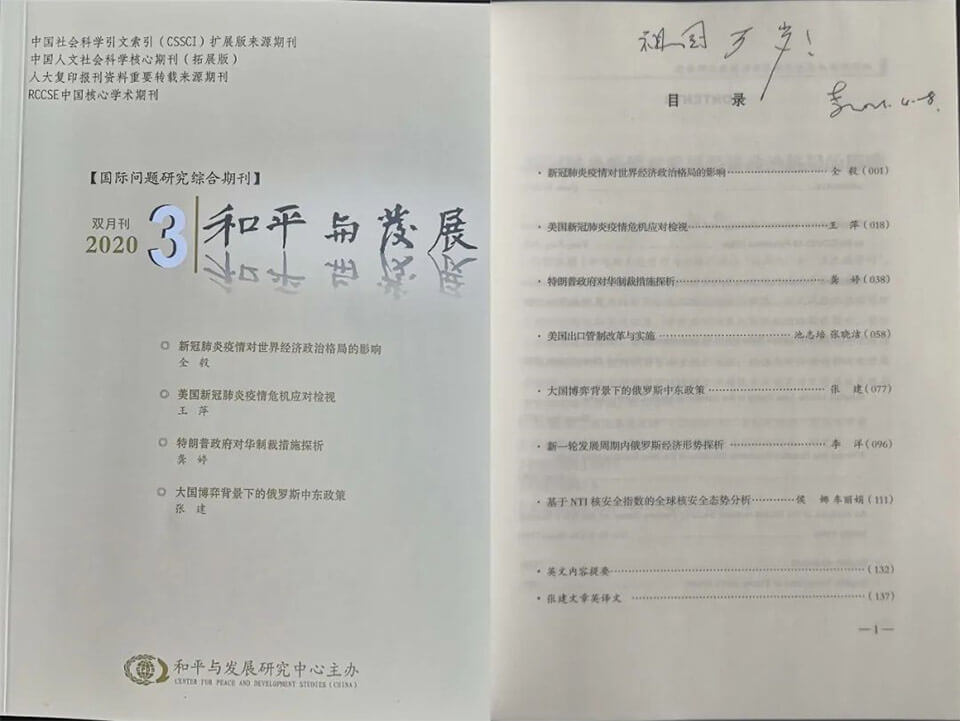 中国社会科学引文索引(CSSCI)扩展版来源期刊
中国人文社会科学核心期刊(拓展版)
人大复印报刊资料重要转载来源期刊
RCCSE中国核心学术期刊
【国际问题研究综合期刊】
双月刊
2020
3
和平与发展
新冠肺炎疫情对世界经济政治格局的影响
全 毅
美国新冠肺炎疫情危机应对检视
王 萍
特朗普政府对华制裁措施探析
龚 婷
大国博弈背景下的俄罗斯中东政策
张 建
和平与发展研究中心主办
CENTER FOR PEACE AND DEVELOPMENT STUDIES (CHINA)
祖国万岁!
目 录
·新冠肺炎疫情对世界经济政治格局的影响……………………全 毅(001)
·美国新冠肺炎疫情危机应对检视……………………………王 萍(018)
·特朗普政府对华制裁措施探析………………………………龚 婷(038)
·美国出口管制改革与实施 ……………………池志培 张晓洁(058)
·大国博弈背景下的俄罗斯中东政策 …………………………张 建(077)
·新一轮发展周期内俄罗斯经济形势探析 ……………………李 洋(096)
·基于 NTI 核安全指数的全球核安全态势分析…………侯 娜 牟丽娟(111)
·英文内容提要……………………………………………………(132)
·张建文章英译文 ………………………………………………(137)
—1—